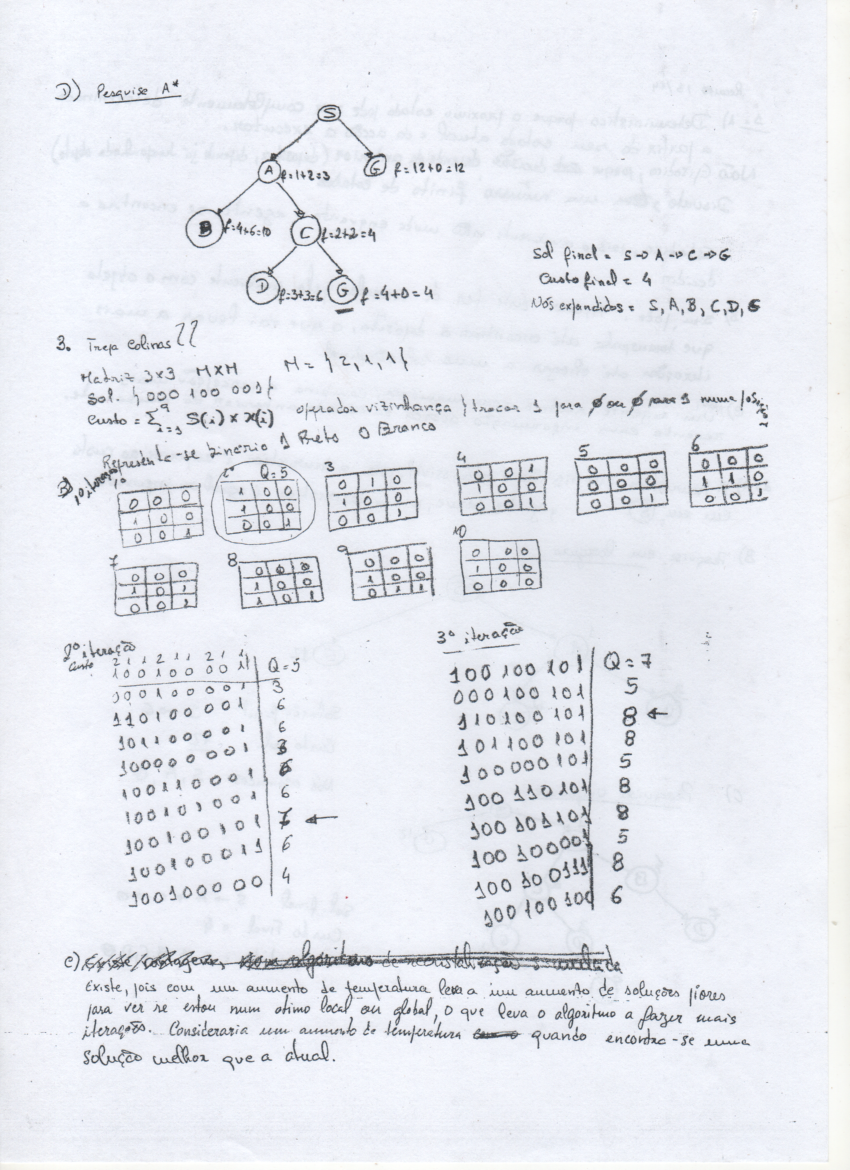 D) Pesquise A*
S
A f=1+2=3 G f=12+0=12
B f=4+6=10 C f=2+2=4
D f=3+3=6 G f=4+0=4
Sol final = S → A → C → G
Custo final = 4
Nós expandidos = S, A, B, C, D, G
3. Trepa Colinas
Matriz 3x3 MxM M = {2,1,1}
Sol. {000 100 001}
Custo = Σ S(i) x x(i) operador vizinhança {trocar 1 para 0 ou 0 para 1 numa
Representa-se binário 1 Preto 0 Branco
B) 1º iteração
1º
0 0 0
1 0 0
0 0 1
2º Q=5
1 0 0
1 0 0
0 0 1
3
0 1 0
1 0 0
0 0 1
4
0 0 1
1 0 0
0 0 1
5
0 0 0
0 0 0
0 0 1
6
0 0 0
1 1 0
0 0 1
7
0 0 0
1 0 1
0 0 1
8
0 0 0
1 0 0
1 0 1
9
0 0 0
1 0 0
0 1 1
10
0 0 0
1 0 0
0 0 0
2º iteração
Custo 2 1 1 2 1 1 2 1 1
100100001 Q=5
000100001 3
110100001 6
101100001 6
100000001 3
100110001 6
100101001 6
100100101 7 ←
100100011 6
100100000 4
3º iteração
100 100 101 Q=7
000 100 101 5
110 100 101 8 ←
101 100 101 8
100 000 101 5
100 110 101 8
100 101 101 8
100 100 001 5
100 100 111 8
100 100 100 6
c)
Existe, pois com um aumento de temperatura leva a um aumento de soluções piores
para ver se estou num otimo local ou global, o que leva o algoritmo a fazer mais
iterações. Consideraria um aumento de temperatura quando encontra-se uma
solução melhor que a atual.